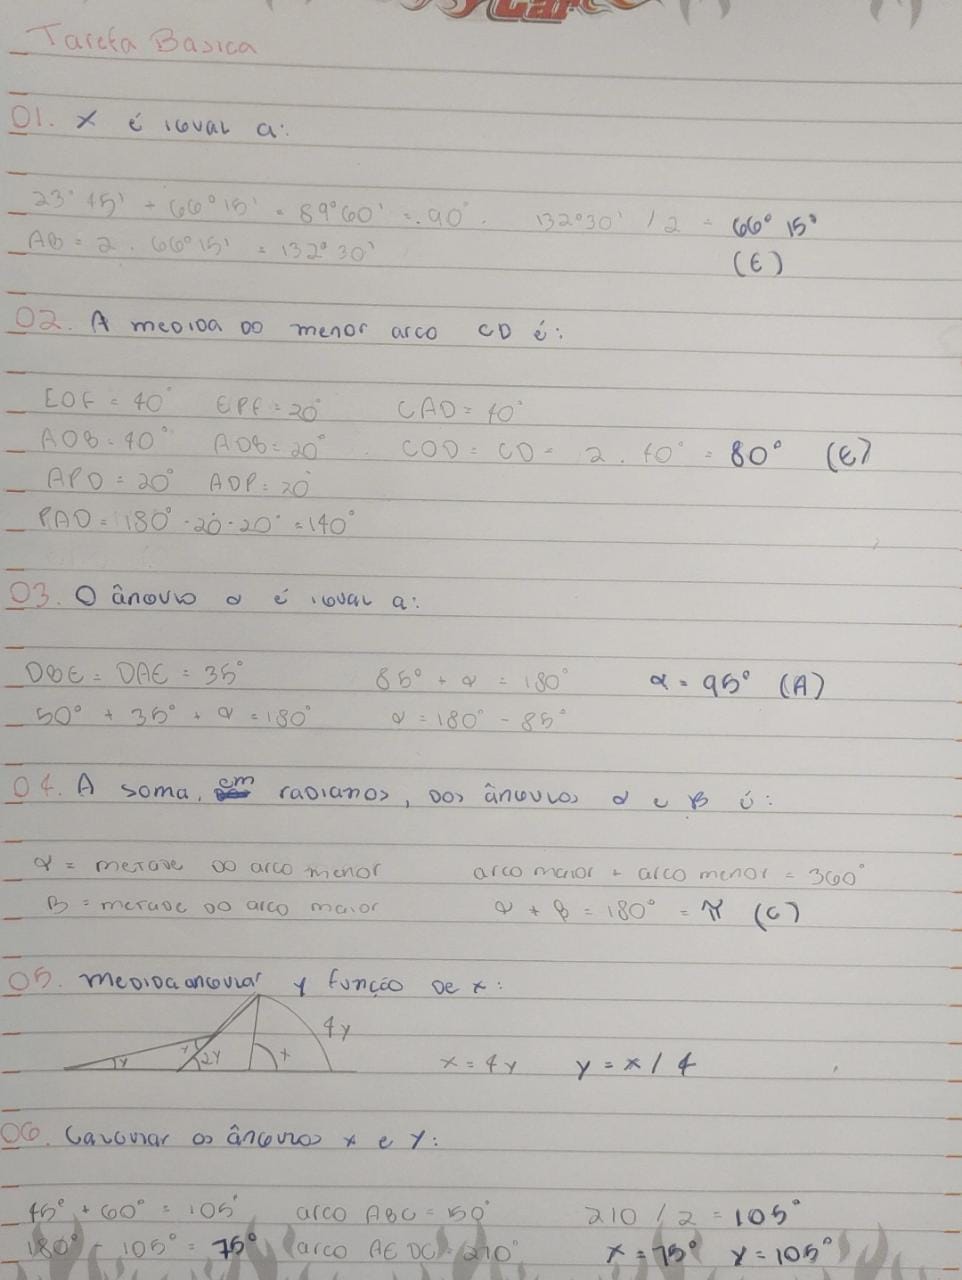 Car
Tarefa Basica
01. x é igual a:
23° 45' + 66° 15' = 89° 60' = 90°. 132° 30' / 2 = 66° 15°
AB = 2 . 66° 15' = 132° 30'
(E)
02. A medida do menor arco CD é:
EOF = 40° EPF = 20° CAD = 40°
AOB = 40° ADB = 20° COD = CD = 2 . 40° = 80° (E)
APD = 20° ADP = 20°
PAD = 180° - 20 - 20° = 140°
03. O ângulo α é igual a:
DBE = DAE = 35° 85° + α = 180° α = 95° (A)
50° + 35° + α = 180° α = 180° - 85°
04. A soma, em radianos, dos ângulos α e B é:
α = metade do arco menor arco maior + arco menor = 360°
B = metade do arco maior α + B = 180° = π (C)
05. Medida angular y função de x:
4y
y y 2y x x = 4y y = x / 4
06. Calcular os ângulos x e y:
45° + 60° = 105° arco ABC = 150° 210 / 2 = 105°
180° - 105° = 75° arco AEDC = 210° x = 75° y = 105°